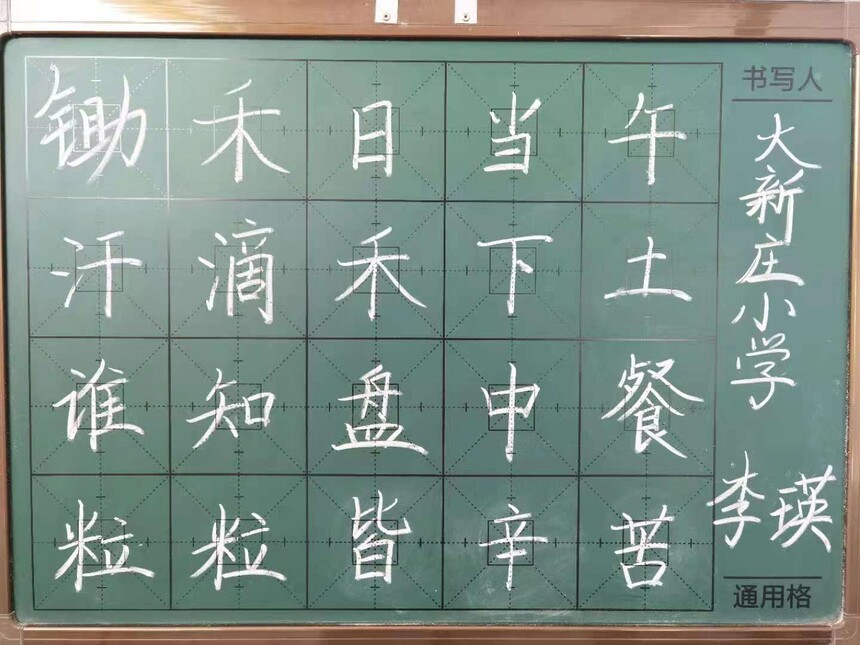 锄禾日当午
汗滴禾下土
谁知盘中餐
粒粒皆辛苦
书写人
大新庄小学
李瑛
通用格